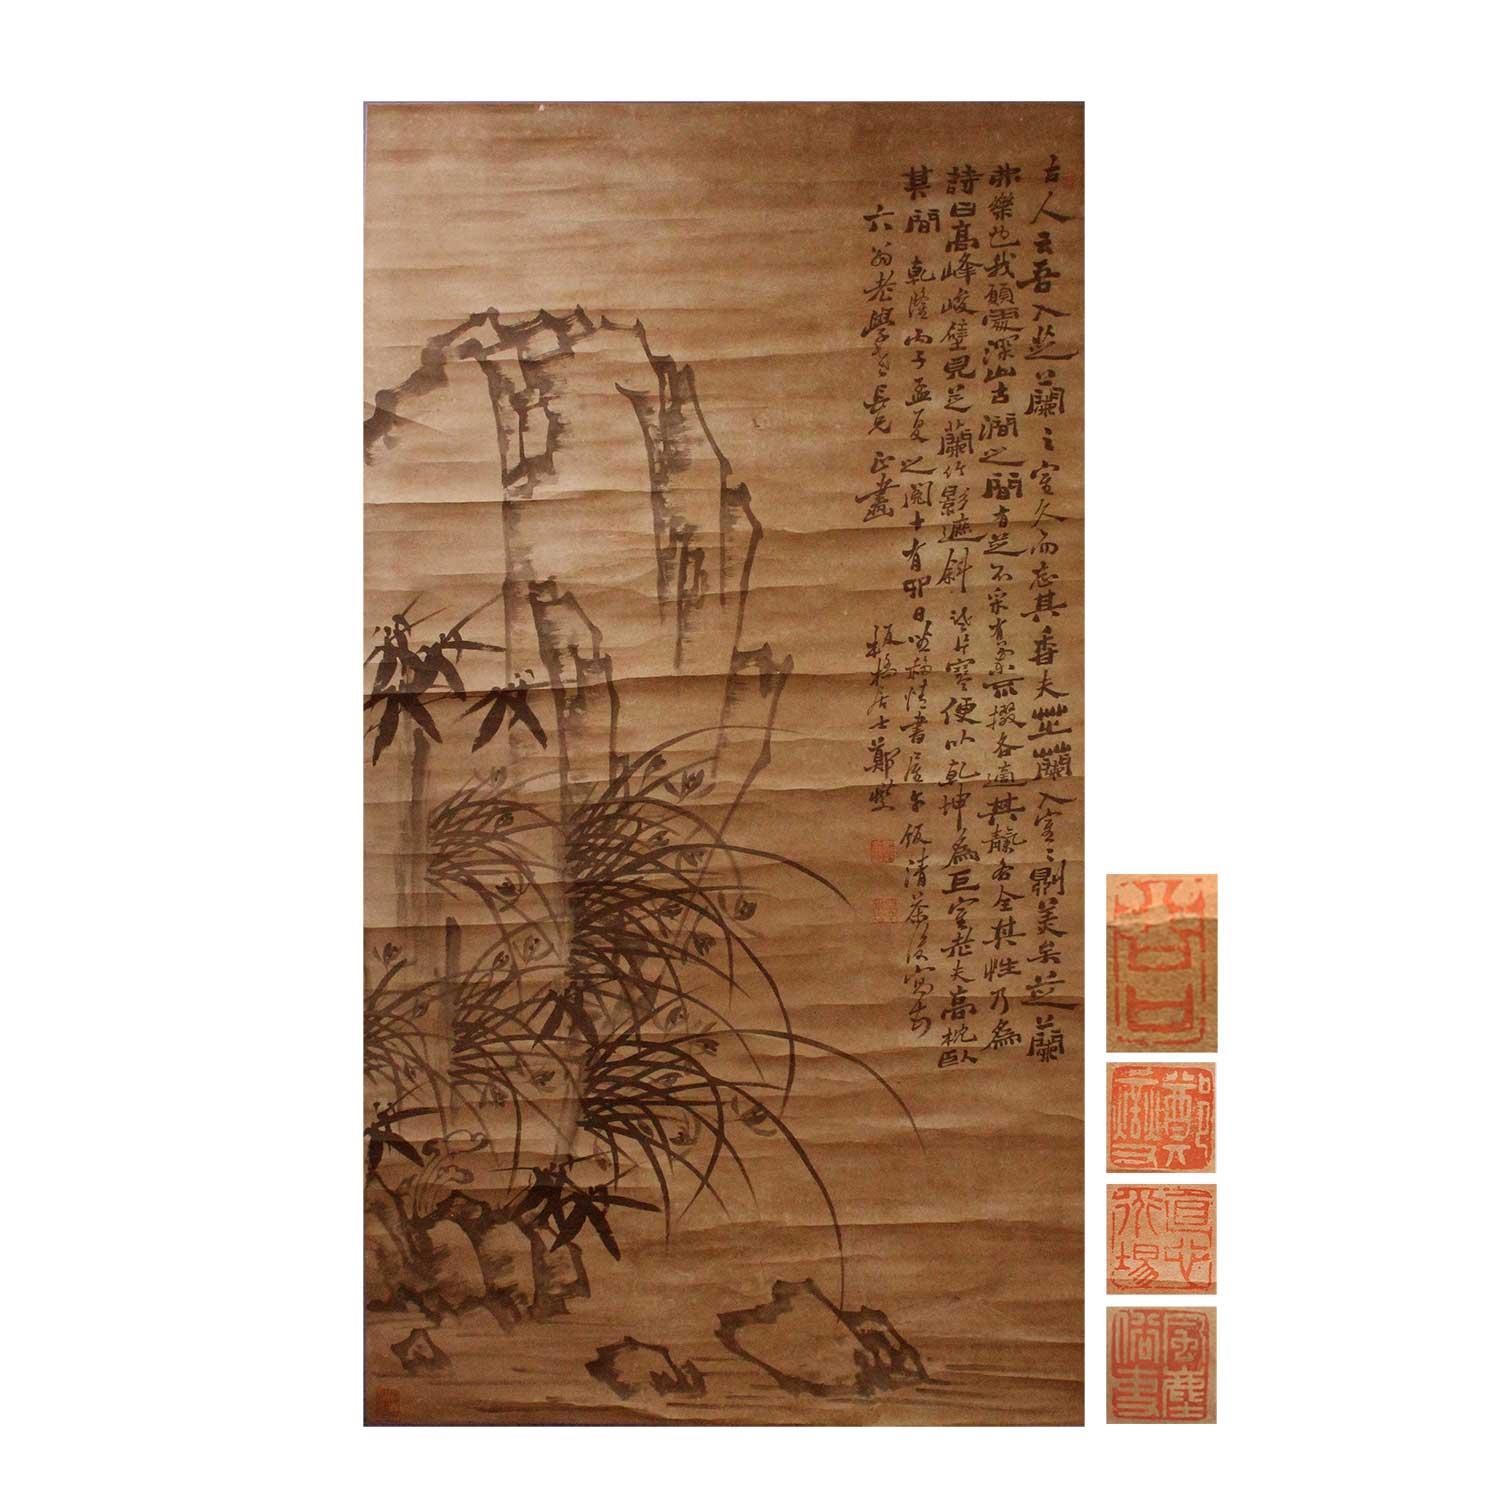 古人云吾入芝蘭之室久而忘其香夫芝蘭入室室則美矣芝蘭
弗樂也我願處深山古澗之間有芝不采有蘭不掇各適其龝各全其性乃為
詩曰高峰峻壁見芝蘭竹影遮斜片寒便以乾坤為巨室老夫高枕臥
其間 乾隆丙子孟夏之閏十有卯日坐書屋午飯清茶後寫
六翁老學老長兄正畫
板橋居士鄭燮
鄭燮
直心道場
風塵俗吏